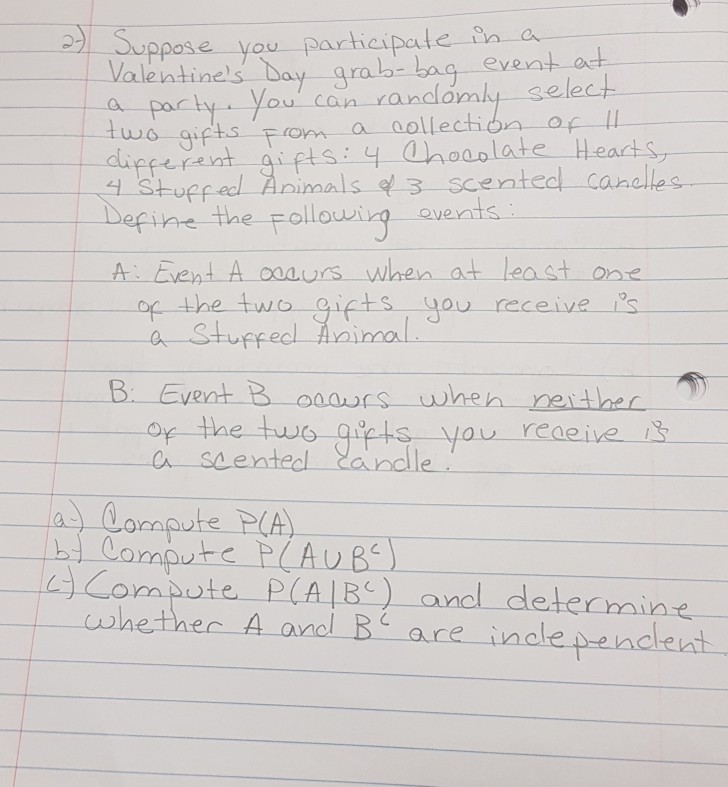 2-) Suppose you participate in a
Valentine's Day grab-bag event at
a party. You can randomly select
two gifts from a collection of 11
different gifts: 4 Chocolate Hearts,
4 Stuffed Animals & 3 scented candles.
Define the following events:
A: Event A occurs when at least one
of the two gifts you receive is
a Stuffed Animal.
B: Event B occurs when neither
of the two gifts you receive is
a scented candle.
a-) Compute P(A)
b-) Compute P(A∪Bᶜ)
c-) Compute P(A|Bᶜ) and determine
whether A and Bᶜ are independent.